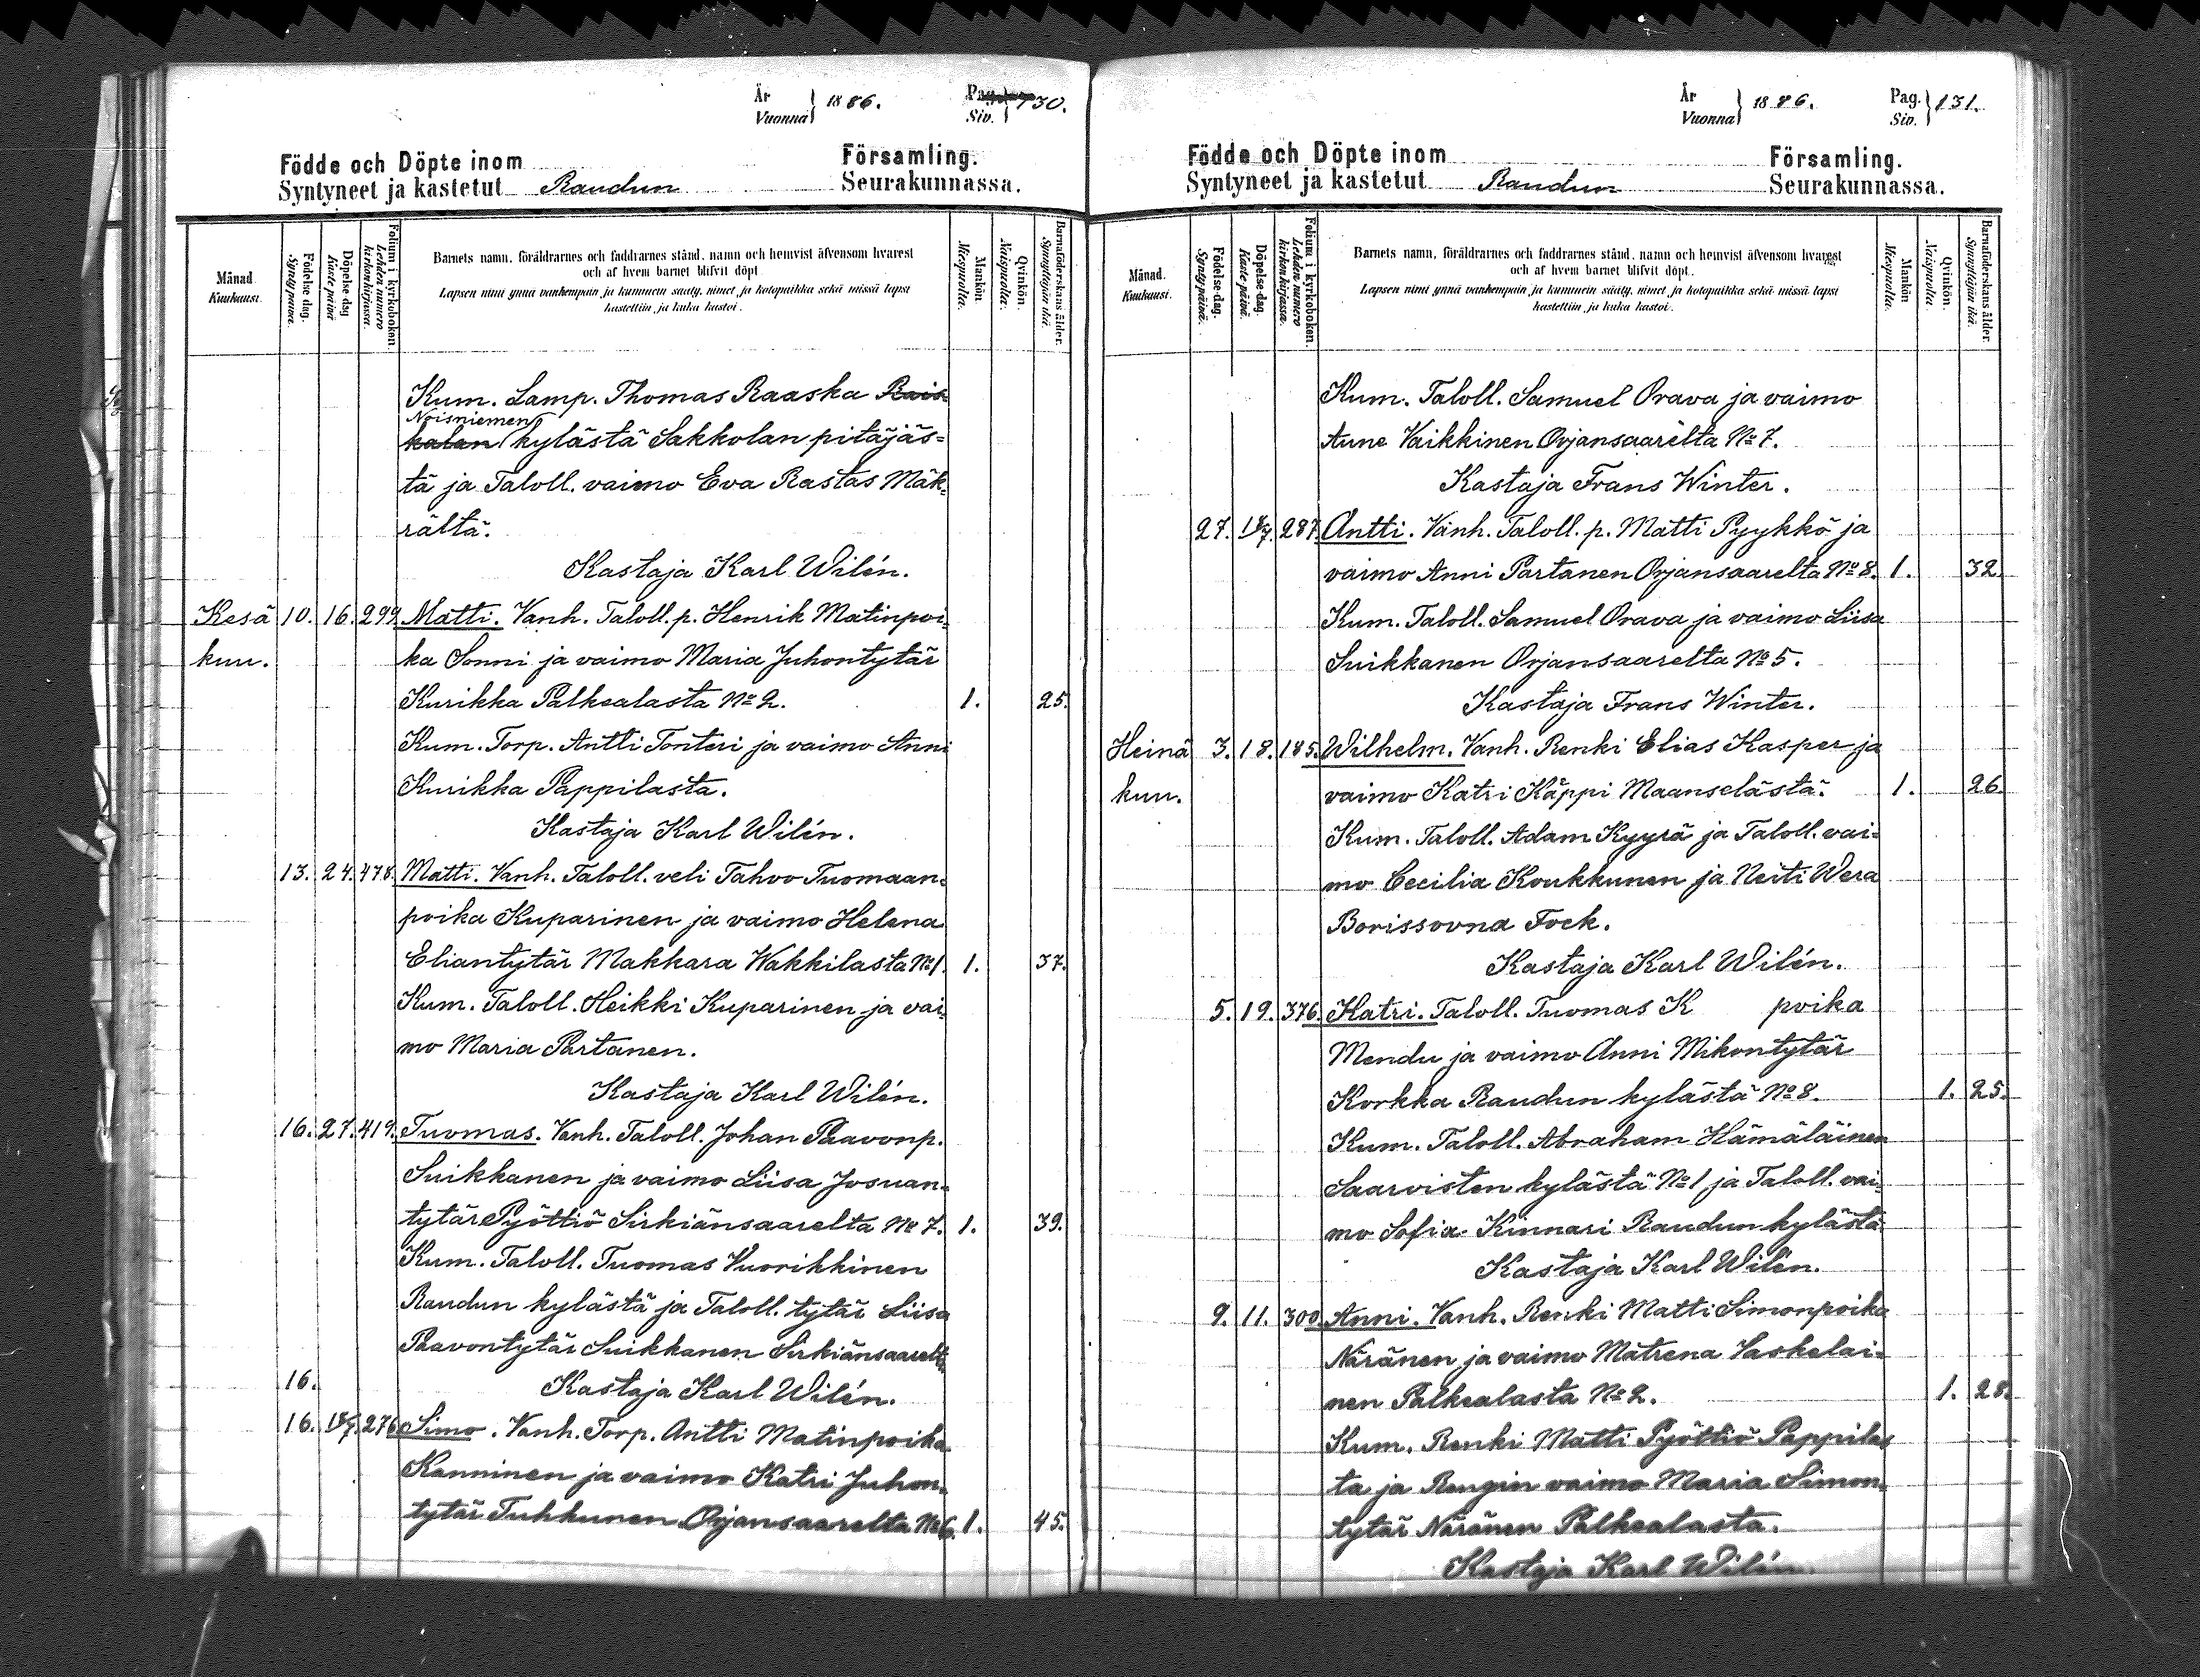 År
Vuonna } 1886.
Pag.
Siv. } 130.
Födde och Döpte inom Församling.
Syntyneet ja kastetut Raudun Seurakunnassa.
Månad. Kuukausi.
Födelse-dag. Syntypäivä.
Döpelse-dag. Kaste-päivä.
Folium i kyrkoboken. Lehden numero kirkonkirjassa.
Barnets namn, föräldrarnes och faddrarnes stånd, namn och hemvist äfvensom hvarest
och af hvem barnet blifvit döpt.
Lapsen nimi ynnä vanhempain ja kummein sääty, nimet ja kotopaikka sekä missä lapsi
kastettiin ja kuka kastoi.
Mankön. Miespuolta.
Qvinkön. Naispuolta.
Barnaföderskans ålder. Synnyttäjän ikä.
Kum. Lamp. Thomas Raaska Rais
Noisniemen
kalan kylästä Sakkolan pitäjäs-
tä ja Taloll. vaimo Eva Rastas Mäk-
rältä.
Kastaja Karl Wilén.
Kesä 10. 16. 299. Matti. Vanh. Taloll. p. Henrik Matinpoi-
kuu. ka Sonni ja vaimo Maria Juhontytär
Kurikka Palkealasta No 2. 1. 25.
Kum. Torp. Antti Tonteri ja vaimo Anni
Kurikka Pappilasta.
Kastaja Karl Wilén.
13. 24. 478. Matti. Vanh. Taloll. veli Tahvo Tuomaan-
poika Kuparinen ja vaimo Helena
Eliantytär Makkara Wakkilasta No 1. 1. 37.
Kum. Taloll. Heikki Kuparinen ja vai-
mo Maria Partanen.
Kastaja Karl Wilén.
16. 27. 419. Tuomas. Vanh. Taloll. Johan Paavonp.
Suikkanen ja vaimo Liisa Josuan-
tytär Pyöttiö Sirkiänsaarelta No 7. 1. 39.
Kum. Taloll. Tuomas Vuorikkinen
Raudun kylästä ja Taloll. tytär Liisa
Paavontytär Suikkanen Sirkiänsaarelta
16. Kastaja Karl Wilén.
16. 18/7. 276. Simo. Vanh. Torp. Antti Matinpoika
Kanninen ja vaimo Katri Juhon-
tytär Tuhkunen Orjansaarelta No 6. 1. 45.
År
Vuonna } 1886.
Pag.
Siv. } 131.
Födde och Döpte inom Församling.
Syntyneet ja kastetut Raudun Seurakunnassa.
Månad. Kuukausi.
Födelse-dag. Syntypäivä.
Döpelse-dag. Kaste-päivä.
Folium i kyrkoboken. Lehden numero kirkonkirjassa.
Barnets namn, föräldrarnes och faddrarnes stånd, namn och hemvist äfvensom hvarest
och af hvem barnet blifvit döpt.
Lapsen nimi ynnä vanhempain ja kummein sääty, nimet ja kotopaikka sekä missä lapsi
kastettiin ja kuka kastoi.
Mankön. Miespuolta.
Qvinkön. Naispuolta.
Barnaföderskans ålder. Synnyttäjän ikä.
Kum. Taloll. Samuel Orava ja vaimo
Aune Vaikkinen Orjansaarelta No 7.
Kastaja Frans Winter.
27. 18/7. 287. Antti. Vanh. Taloll. p. Matti Pyykkö ja
vaimo Anni Partanen Orjansaarelta No 8. 1. 32.
Kum. Taloll. Samuel Orava ja vaimo Liisa
Suikkanen Orjansaarelta No 5.
Kastaja Frans Winter.
Heinä 3. 18. 185. Wilhelm. Vanh. Renki Elias Kasper ja
kuu. vaimo Katri Käppi Maanselästä. 1. 26.
Kum. Taloll. Adam Kyyrä ja Taloll. vai-
mo Cecilia Koukkunen ja Neiti Wera
Borissovna Fock.
Kastaja Karl Wilén.
5. 19. 376. Katri. Taloll. Tuomas K poika
Mendu ja vaimo Anni Mikontytär
Korkka Raudun kylästä No 8. 1. 25.
Kum. Taloll. Abraham Hämäläinen
Saarvisten kylästä No 1 ja Taloll. vai-
mo Sofia Kinnari Raudun kylästä
Kastaja Karl Wilén.
9. 11. 300. Anni. Vanh. Renki Matti Simonpoika
Näränen ja vaimo Matrena Vaskelai-
nen Palkealasta No 2. 1. 28.
Kum. Renki Matti Pyöttiö Pappilas
ta ja Rengin vaimo Maria Simon-
tytär Näränen Palkealasta.
Kastaja Karl Wilén.